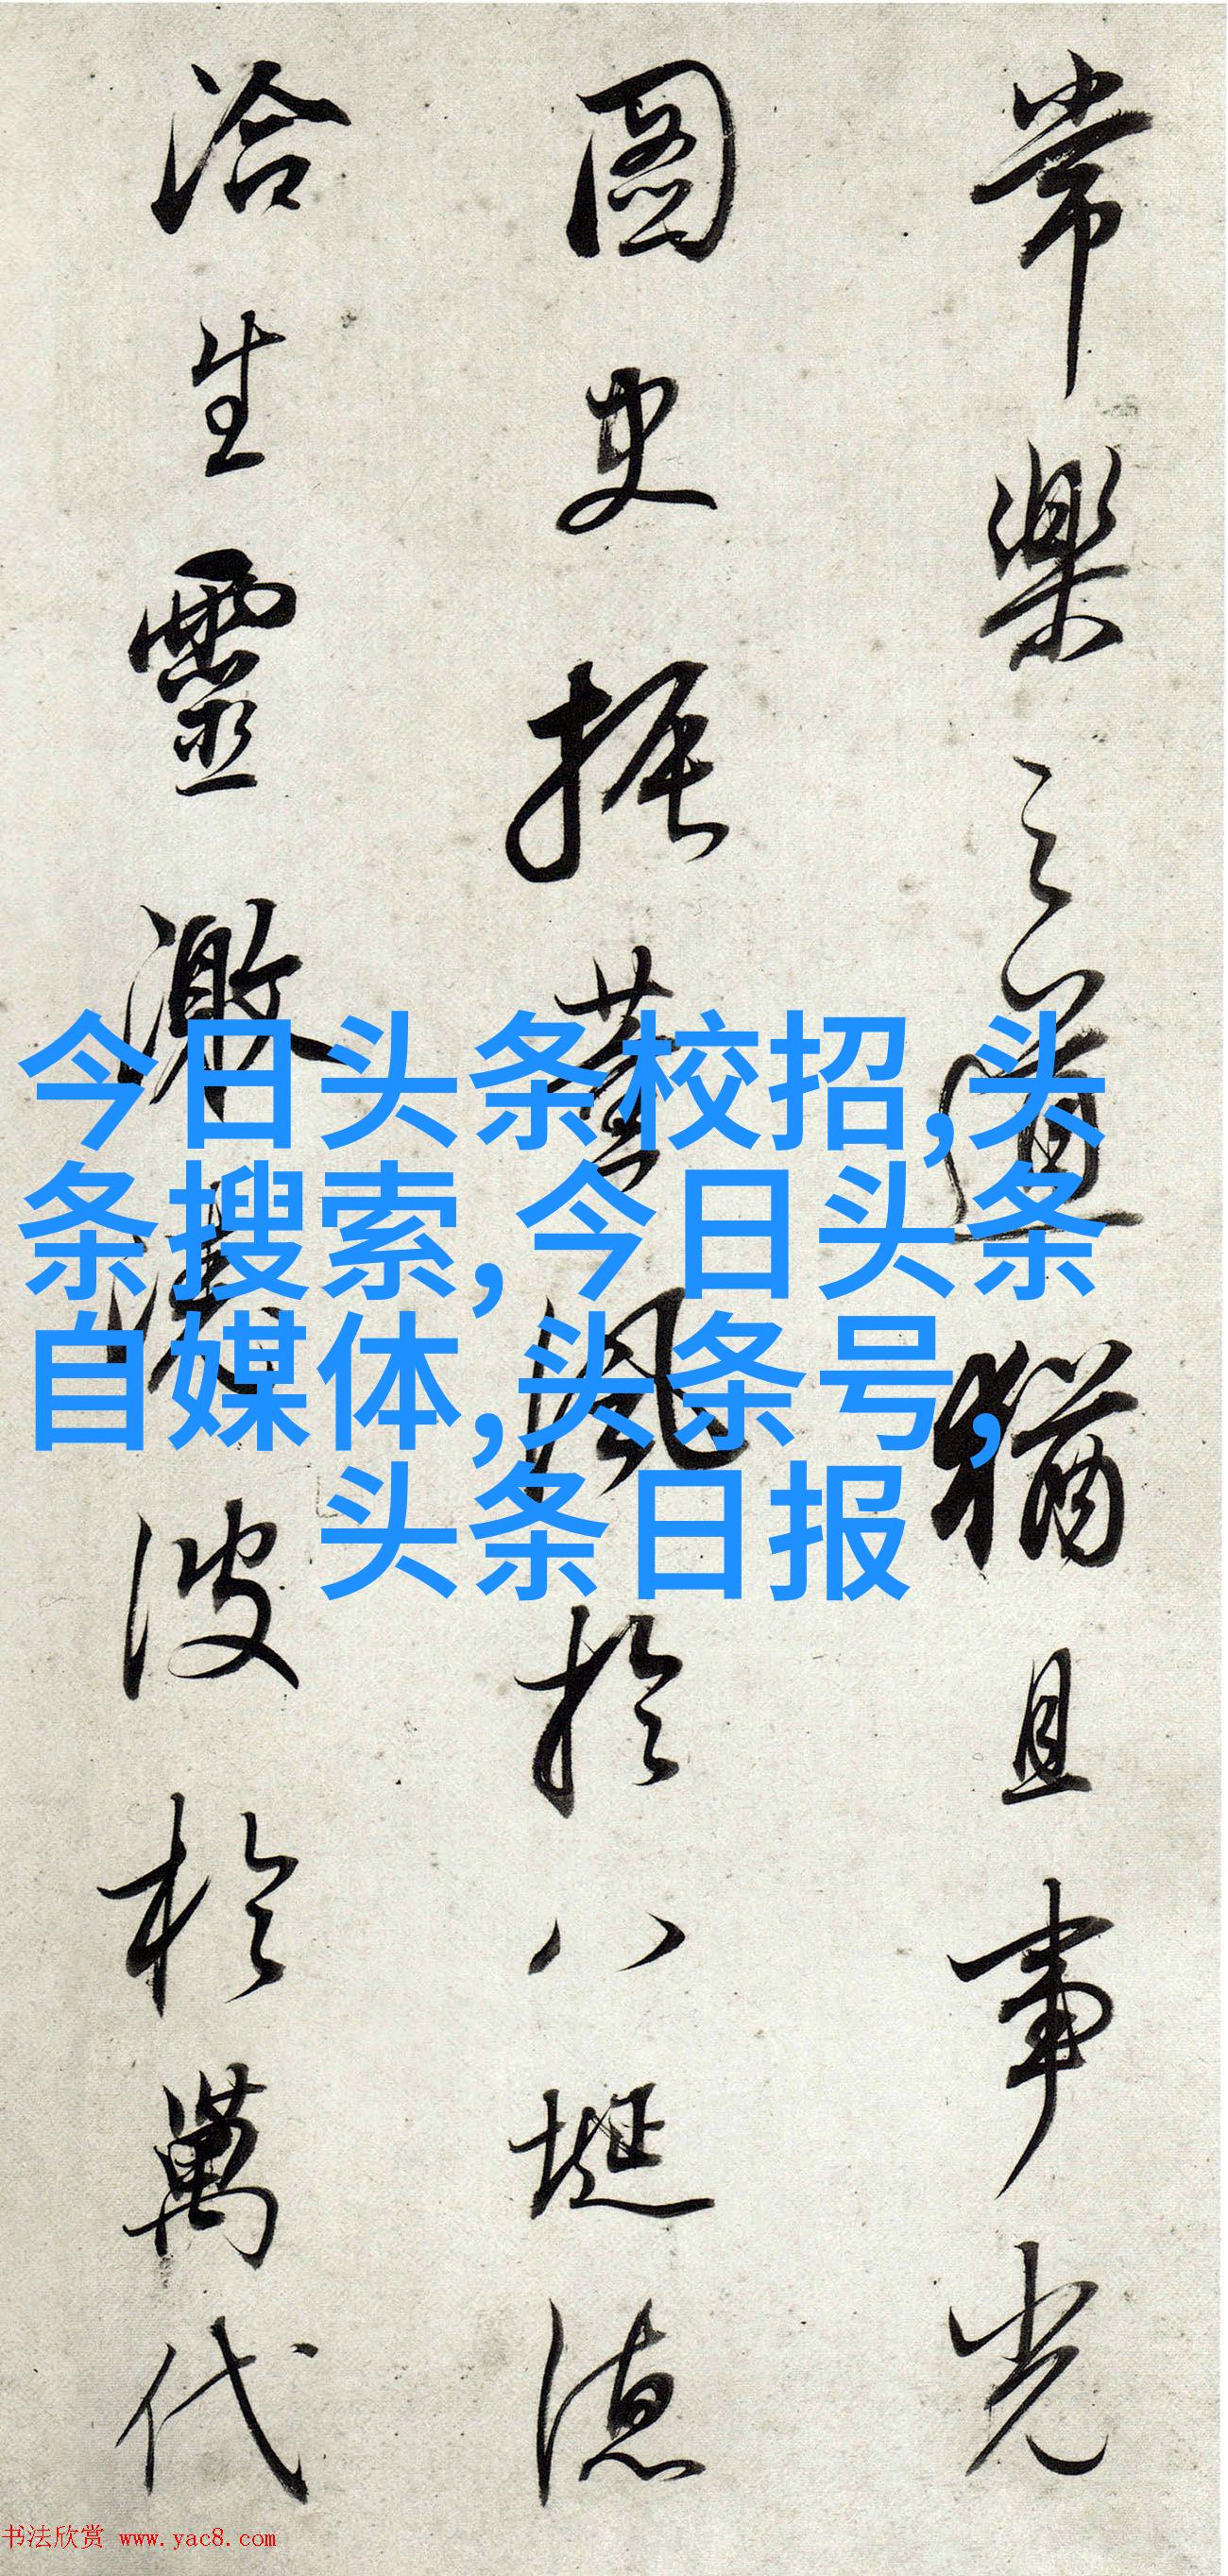 常樂之道猶且事光
圖史振薰風於八埏德
洽生靈激波於萬代
今日头条校招,头
条搜索,今日头条
自媒体,头条号,
头条日报
书法欣赏 www.yac8.com